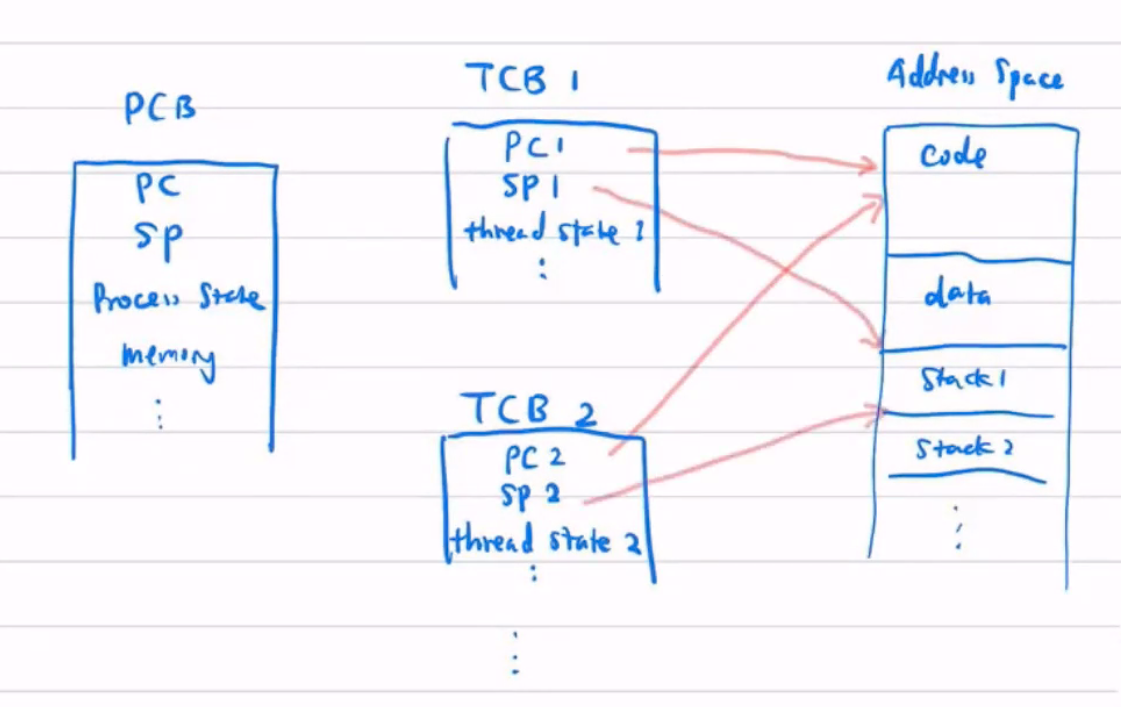 PCB
PC
SP
Process State
Memory
⋮
TCB 1
PC1
SP1
thread state 1
⋮
TCB 2
PC 2
SP 2
thread state 2
⋮
⋮
Address Space
Code
data
Stack1
Stack2
⋮